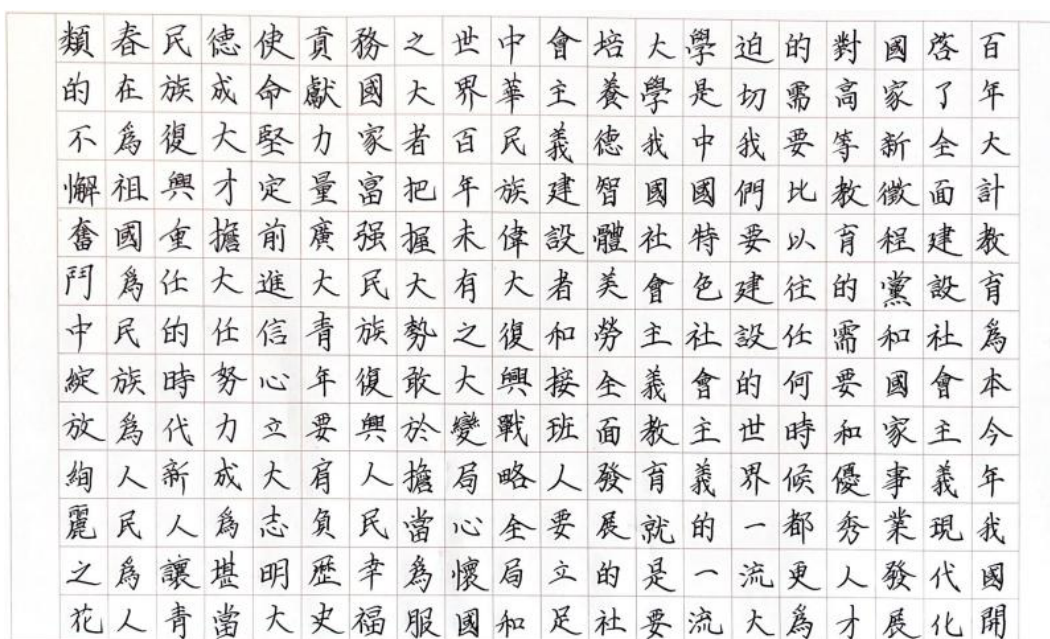 百年大計教育為本今年我國開
啓了全面建設社會主義現代化
國家新徵程黨和國家事業發展
對高等教育的需要和優秀人才
的需要比以往任何時候都更為
迫切我們要建設的世界一流大
學是中國特色社會主義的一流
大學我國社會主義教育就是要
培養德智體美勞全面發展的社
會主義建設者和接班人要立足
中華民族偉大復興戰略全局和
世界百年未有之大變局心懷國
之大者把握大勢敢於擔當為服
務國家富强民族復興人民幸福
貢獻力量廣大青年要肩負歷史
使命堅定前進信心立大志明大
德成大才擔大任努力成為堪當
民族復興重任的時代新人讓青
春在為祖國為民族為人民為人
類的不懈奮鬥中綻放絢麗之花